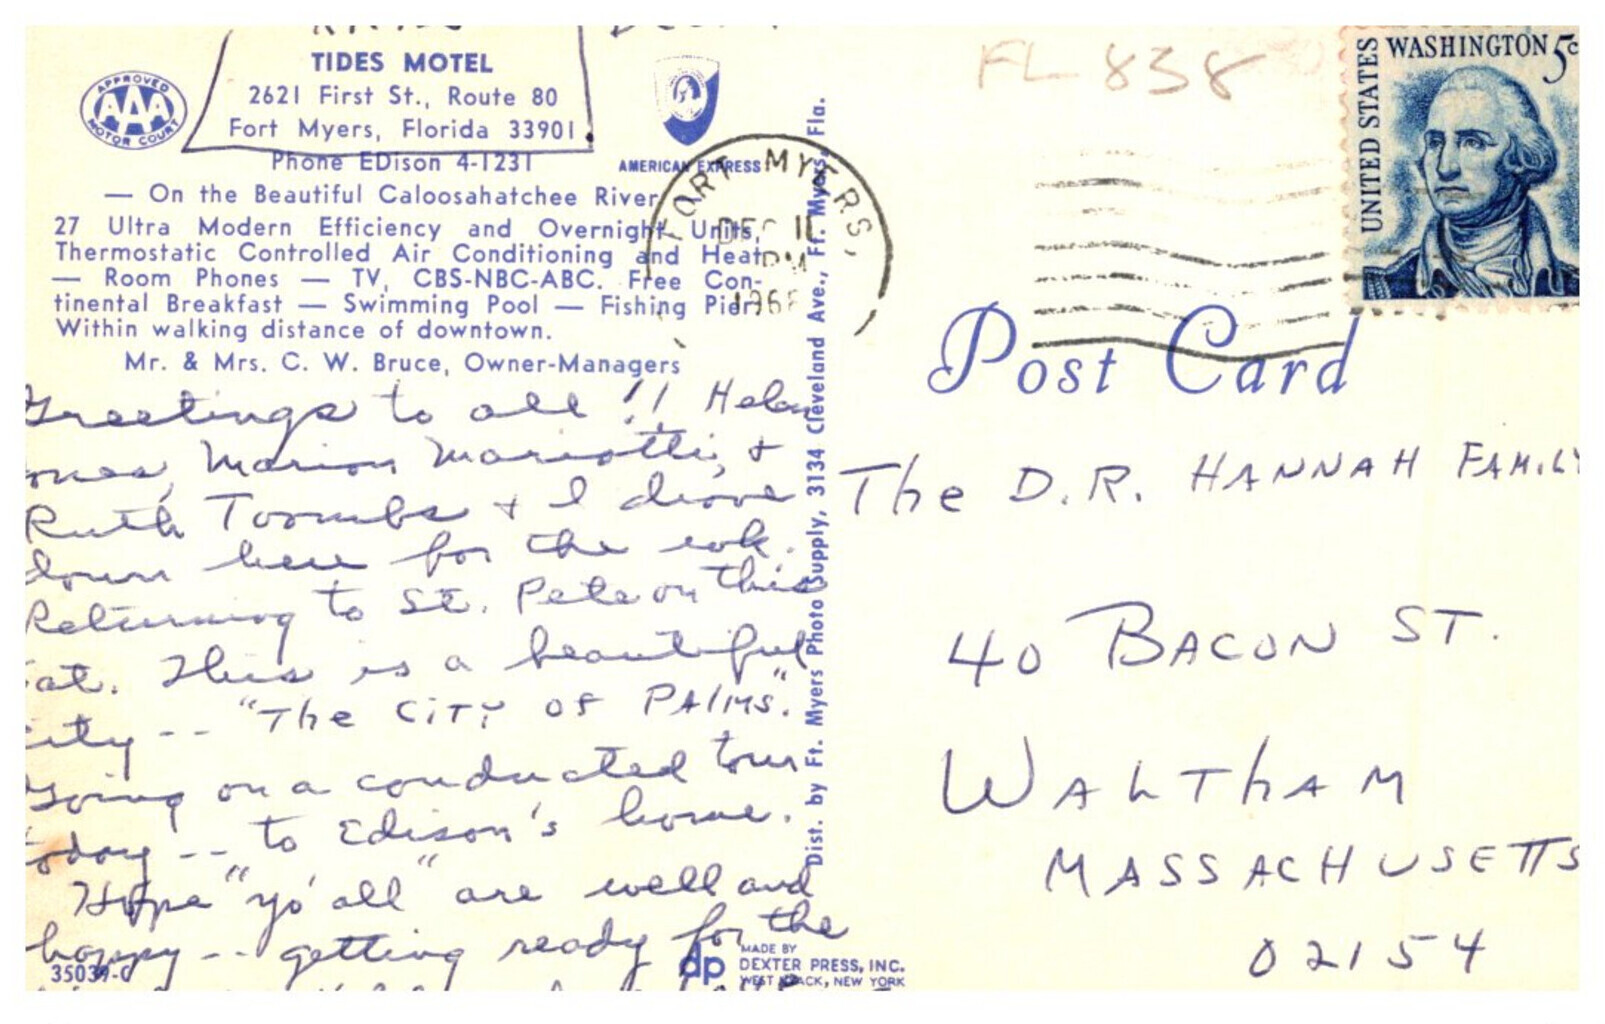 TIDES MOTEL
2621 First St., Route 80
Fort Myers, Florida 33901
Phone EDison 4-1231
APPROVED
AAA
MOTOR COURT
AMERICAN EXPRESS
— On the Beautiful Caloosahatchee River
27 Ultra Modern Efficiency and Overnight Units,
Thermostatic Controlled Air Conditioning and Heat
— Room Phones — TV, CBS-NBC-ABC. Free Con-
tinental Breakfast — Swimming Pool — Fishing Pier
Within walking distance of downtown.
Mr. & Mrs. C. W. Bruce, Owner-Managers
Greetings to all !! Helen
Marion Mariotti, +
Ruth Toombs + I drove
down here for the wk.
Returning to St. Pete on this
Sat. This is a beautiful
city -- "The CiTy OF PAlMS."
Going on a conducted tour
today -- to Edison's home.
Hope "yo' all" are well and
happy -- getting ready for the
35039-C
dp
MADE BY
DEXTER PRESS, INC.
WEST NYACK, NEW YORK
Dist. by Ft. Myers Photo Supply, 3134 Cleveland Ave., Ft. Myers, Fla.
FORT MYERS,
DEC 11
PM
FL 838
UNITED STATES
WASHINGTON 5c
Post Card
The D.R. HANNAH FAMILY
40 BACON ST.
WALThAM
MASSACHUSETTS
02154